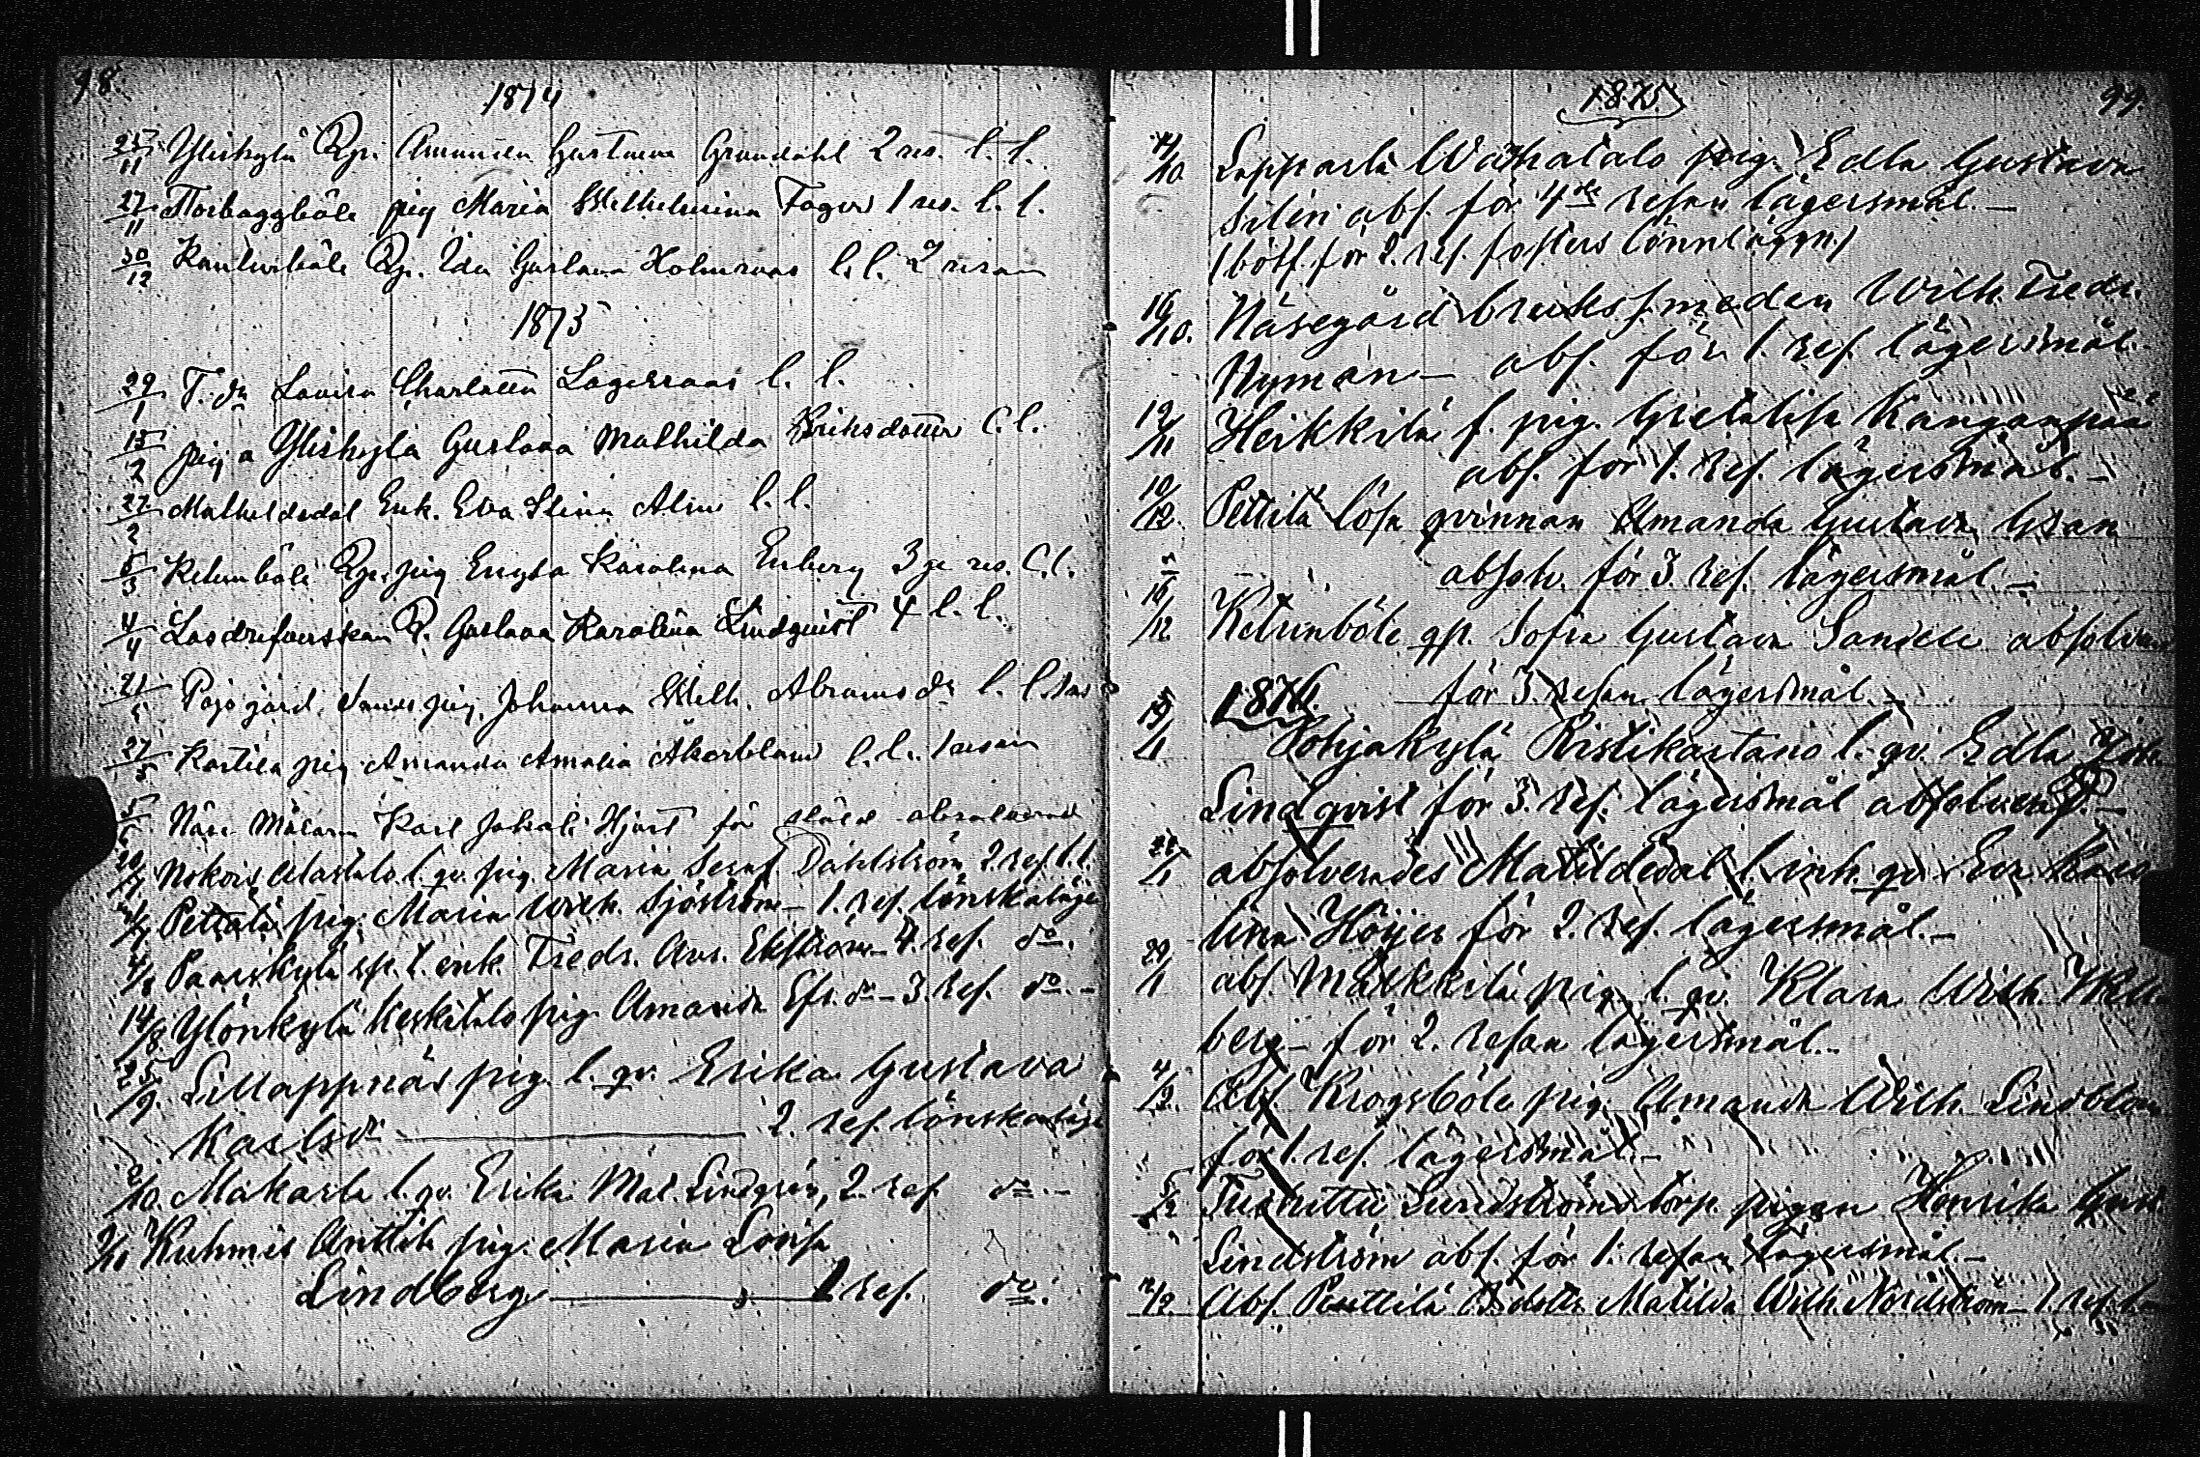 98.
1874
25/11 Yliskylä Qp. Amanda Gustava Grundahl 2 res. l. l.
27/11 Norbaggböle pig Maria Wilhelmina Fager 1 res. l. l.
30/12 Qp. Ida Gustava Holmroos l. l. 2 resan
1875
29/1 T. dr Lovisa Charlotta Lagerroos l. l.
15/2 pig a Yliskylä Gustava Mathilda Eriksdotter l. l.
27/2 Mathildedal Enk. Eva Stina Alin l. l.
5/3 Ketunböle Qp. pig Karolina Enberg 3je res. l. l.
4/4 Gustava Karolina Lindqvist 4 l. l.
21/5 Pojo gård pig. Johanna Wilh. Abramsdr l. l.
27/5 Kartila pig Amanda Amalia Åkerblom l. l. 1 resan
5/6 Näse Målaren Karl Jakob Hjort för stöld
20/7 Alastalo l. qv. pig. Maria Seraf. Dahlström 2. res. l. l.
Pettilä pig. Maria Wilh. Sjöström – 1. res. lönskaläge
Paarskylä enk. Fredr. Ekström – 4. res. do.
14/8 Ylönkylä Keskitalo pig. Amanda Efr. dr – 3. res. do. –
25/9. Lillappnäs pig. l. qv. Erika Gustava
Karlsdr 2. res. lönskaläge
2/10 Makarla l. qv. Erika Mat. Lindgren, 2. res. do. –
9/10 Kuhmis Anttila pig. Maria Lovisa
Lindberg 1 res. do.
99.
1875
4/10 Lapparla Wähätalo pig. Edla Gustava
Silén abs. för 4de resan lägersmål. –
(bötf. för 2. res. fosters lönnläggn.)
16/10. Näsegård brukssmeden Wilh. Fredr.
Nyman – abs. för 1. res. lägersmål.
12/11 Heikkilä f. pig. Gretalisa Kanganpää
abs. för 1. res. lägersmål. –
10/12. Pettilä lösa qvinnan Amanda Gustava Gran
absolv. för 3. res. lägersmål. –
16/12 Ketunböle qp. Sofia Gustava absolv
för 3. resan lägersmål. –
1876.
15/1 Pohjakylä Ristikartano l. qv. Edla Joh.
Lindqvist för 3. res. lägersmål –
22/1 absolverades Matildedal l. inh. qv. Eva Karo
lina Höijer för 2. res. lägersmål. –
29/1 abs. Märkkilä pig. l. qv. Klara Wilh.
berg – för 2. resan lägersmål. –
4/2. Abs. Krogsböle pig. Amanda Wilh. Lindblom
för 1. res. lägersmål. –
5/2 Lundströms torp. pigan Henrika Gust.
Lindström abs. för 1. resan lägersmål –
12/2 Abs. Penttilä Matilda Wilh. Nordström – 1. res. l.